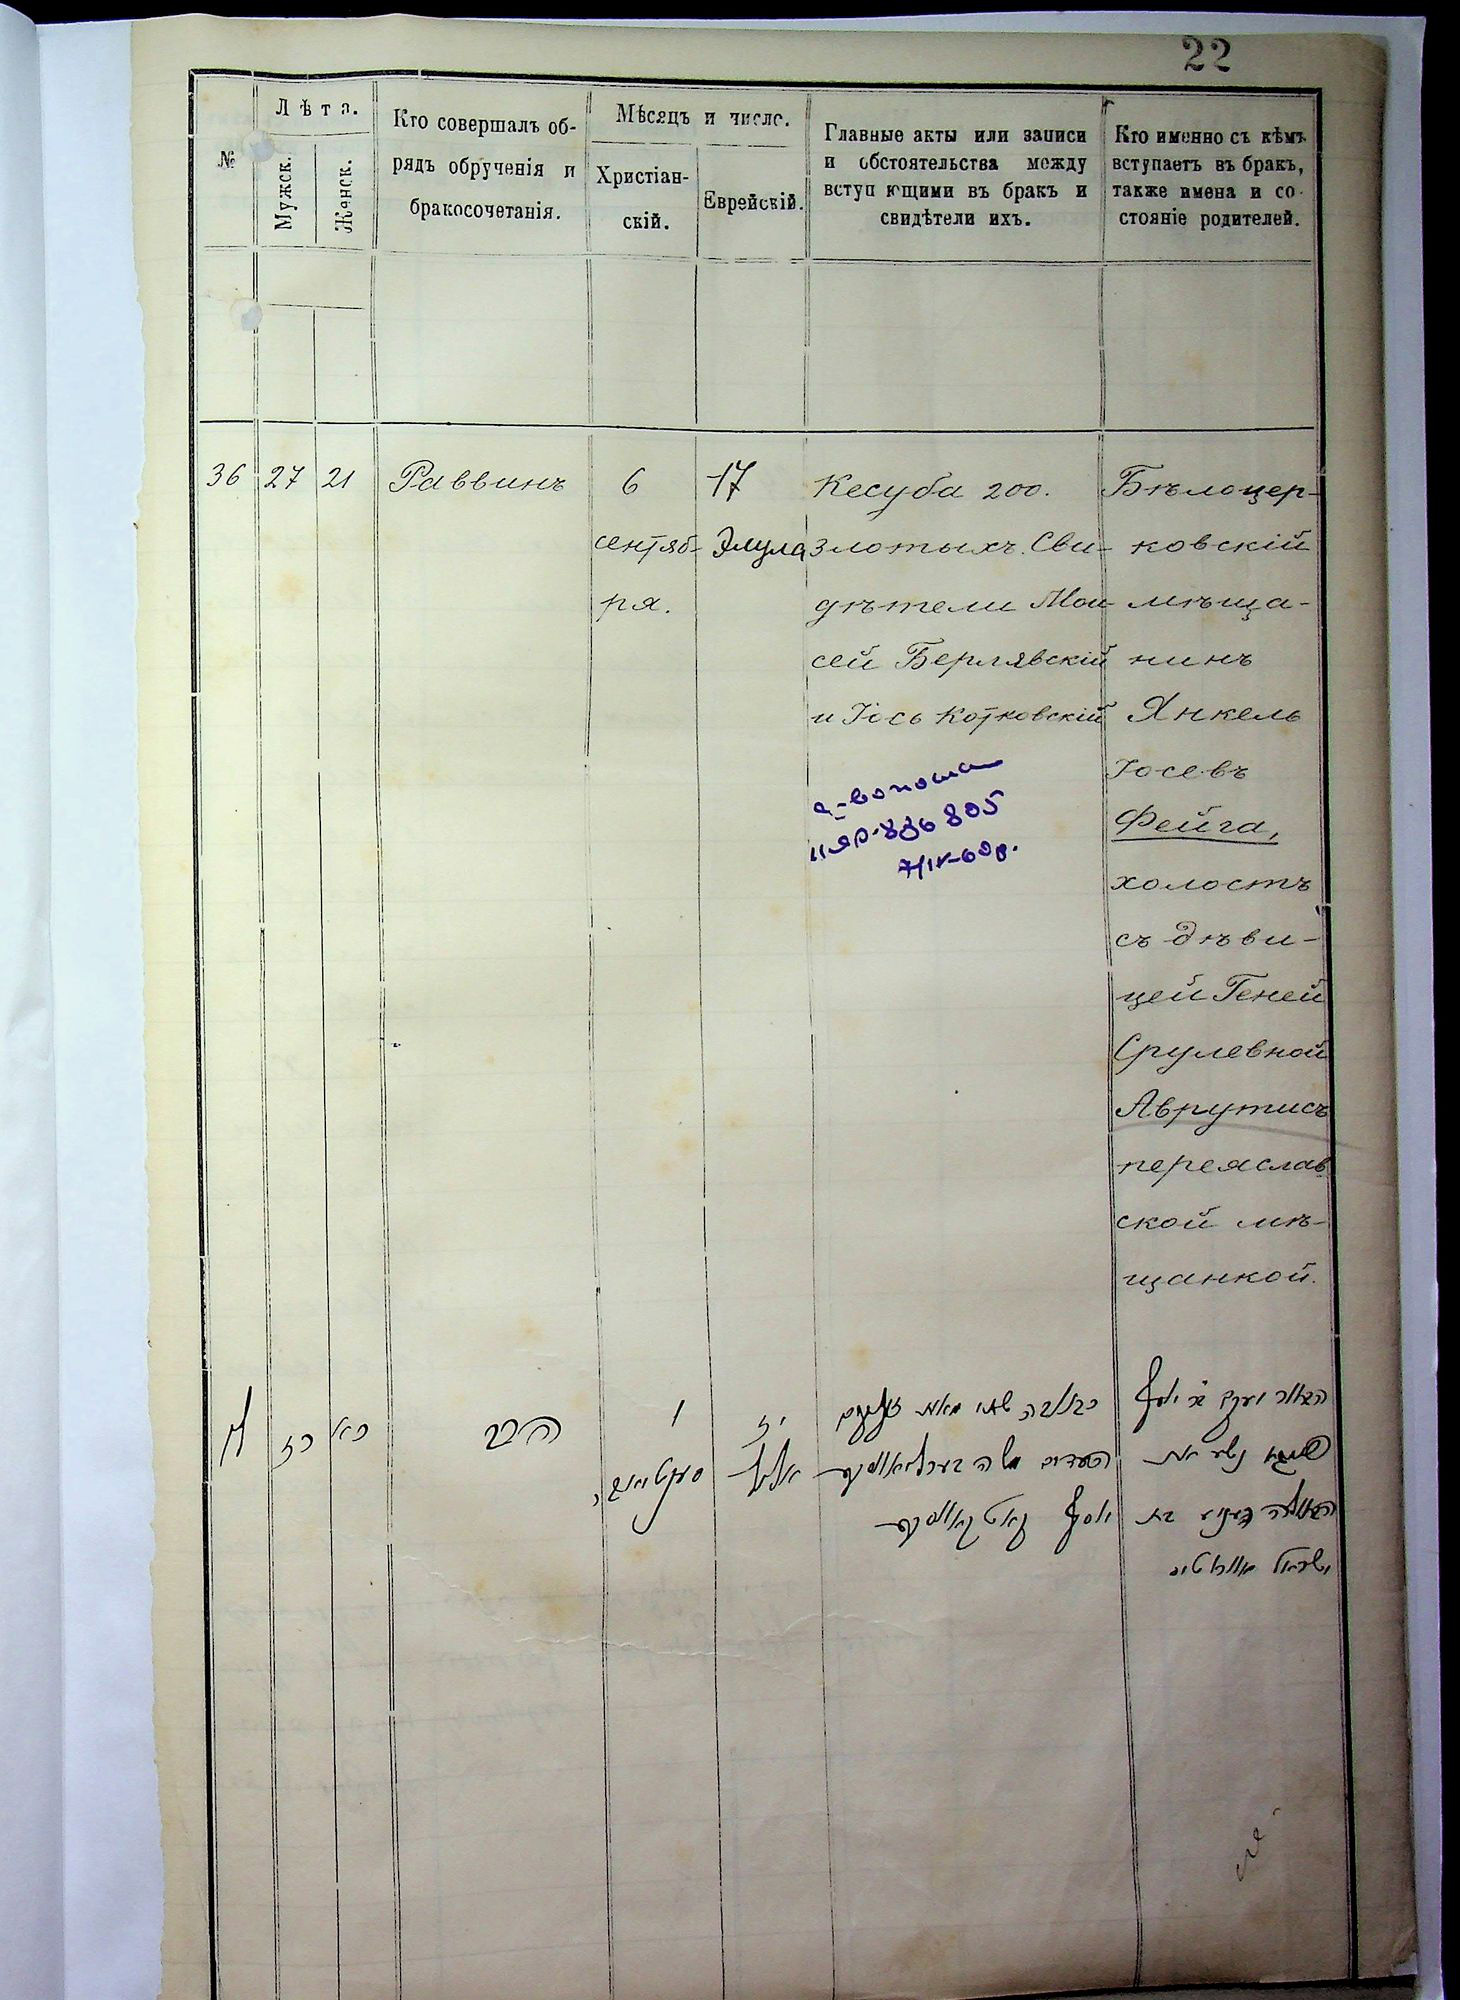 22
№
Лѣта.
Мужск.
Женск.
Кто совершалъ об-
рядъ обрученія и
бракосочетанія.
Мѣсяцъ и число.
Христіан-
скій.
Еврейскій.
Главные акты или записи
и обстоятельства между
вступ ющими въ бракъ и
свидѣтели ихъ.
Кто именно съ кѣмъ
вступаетъ въ бракъ,
также имена и со-
стояніе родителей.
36
27
21
Раввинъ
6
сентяб-
ря.
17
Элула
Кесуба 200.
злотыхъ. Сви-
дѣтели Мои-
сей Берлявскій
и Іось Котковскій
7/IV-60р.
Бѣлоцер-
ковскій
мѣща-
нинъ
Янкель
Іосевъ
Фейга,
холостъ
съ дѣви-
цей Геней
Срулевной
Аврутисъ
переяслав
ской мѣ-
щанкой.
כז
כא
י
יז
אלול
כתובה שתי מאות זהובים
העדים משה
יוסף
הבחור יעקב ב יוסף
נשא את
הבתולה בת
ישראל